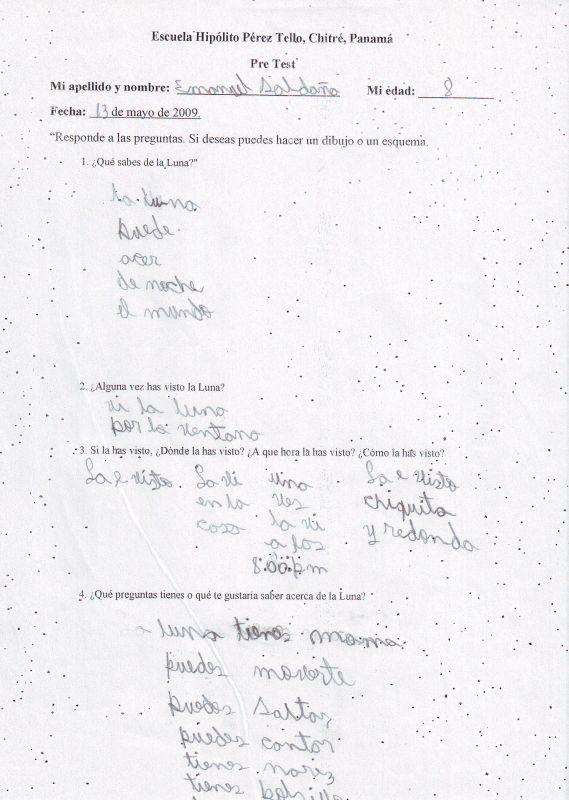 Escuela Hipólito Pérez Tello, Chitré, Panamá
Pre Test
Mi apellido y nombre: Emanuel Saldaña Mi edad: 8
Fecha: 13 de mayo de 2009.
"Responde a las preguntas. Si deseas puedes hacer un dibujo o un esquema.
1. ¿Qué sabes de la Luna?"
la luna
puede
acer
de noche
el mundo
2. ¿Alguna vez has visto la Luna?
vi la luna
por la ventana
3. Si la has visto, ¿Dónde la has visto? ¿A que hora la has visto? ¿Cómo la has visto?
La e visto La vi una La e visto
en la vez chiquita
casa la vi y redonda
a las
8:00 pm
4. ¿Qué preguntas tienes o qué te gustaría saber acerca de la Luna?
luna tienes mama
puedes moverte
puedes saltar
puedes cantar
tienes nariz
tienes